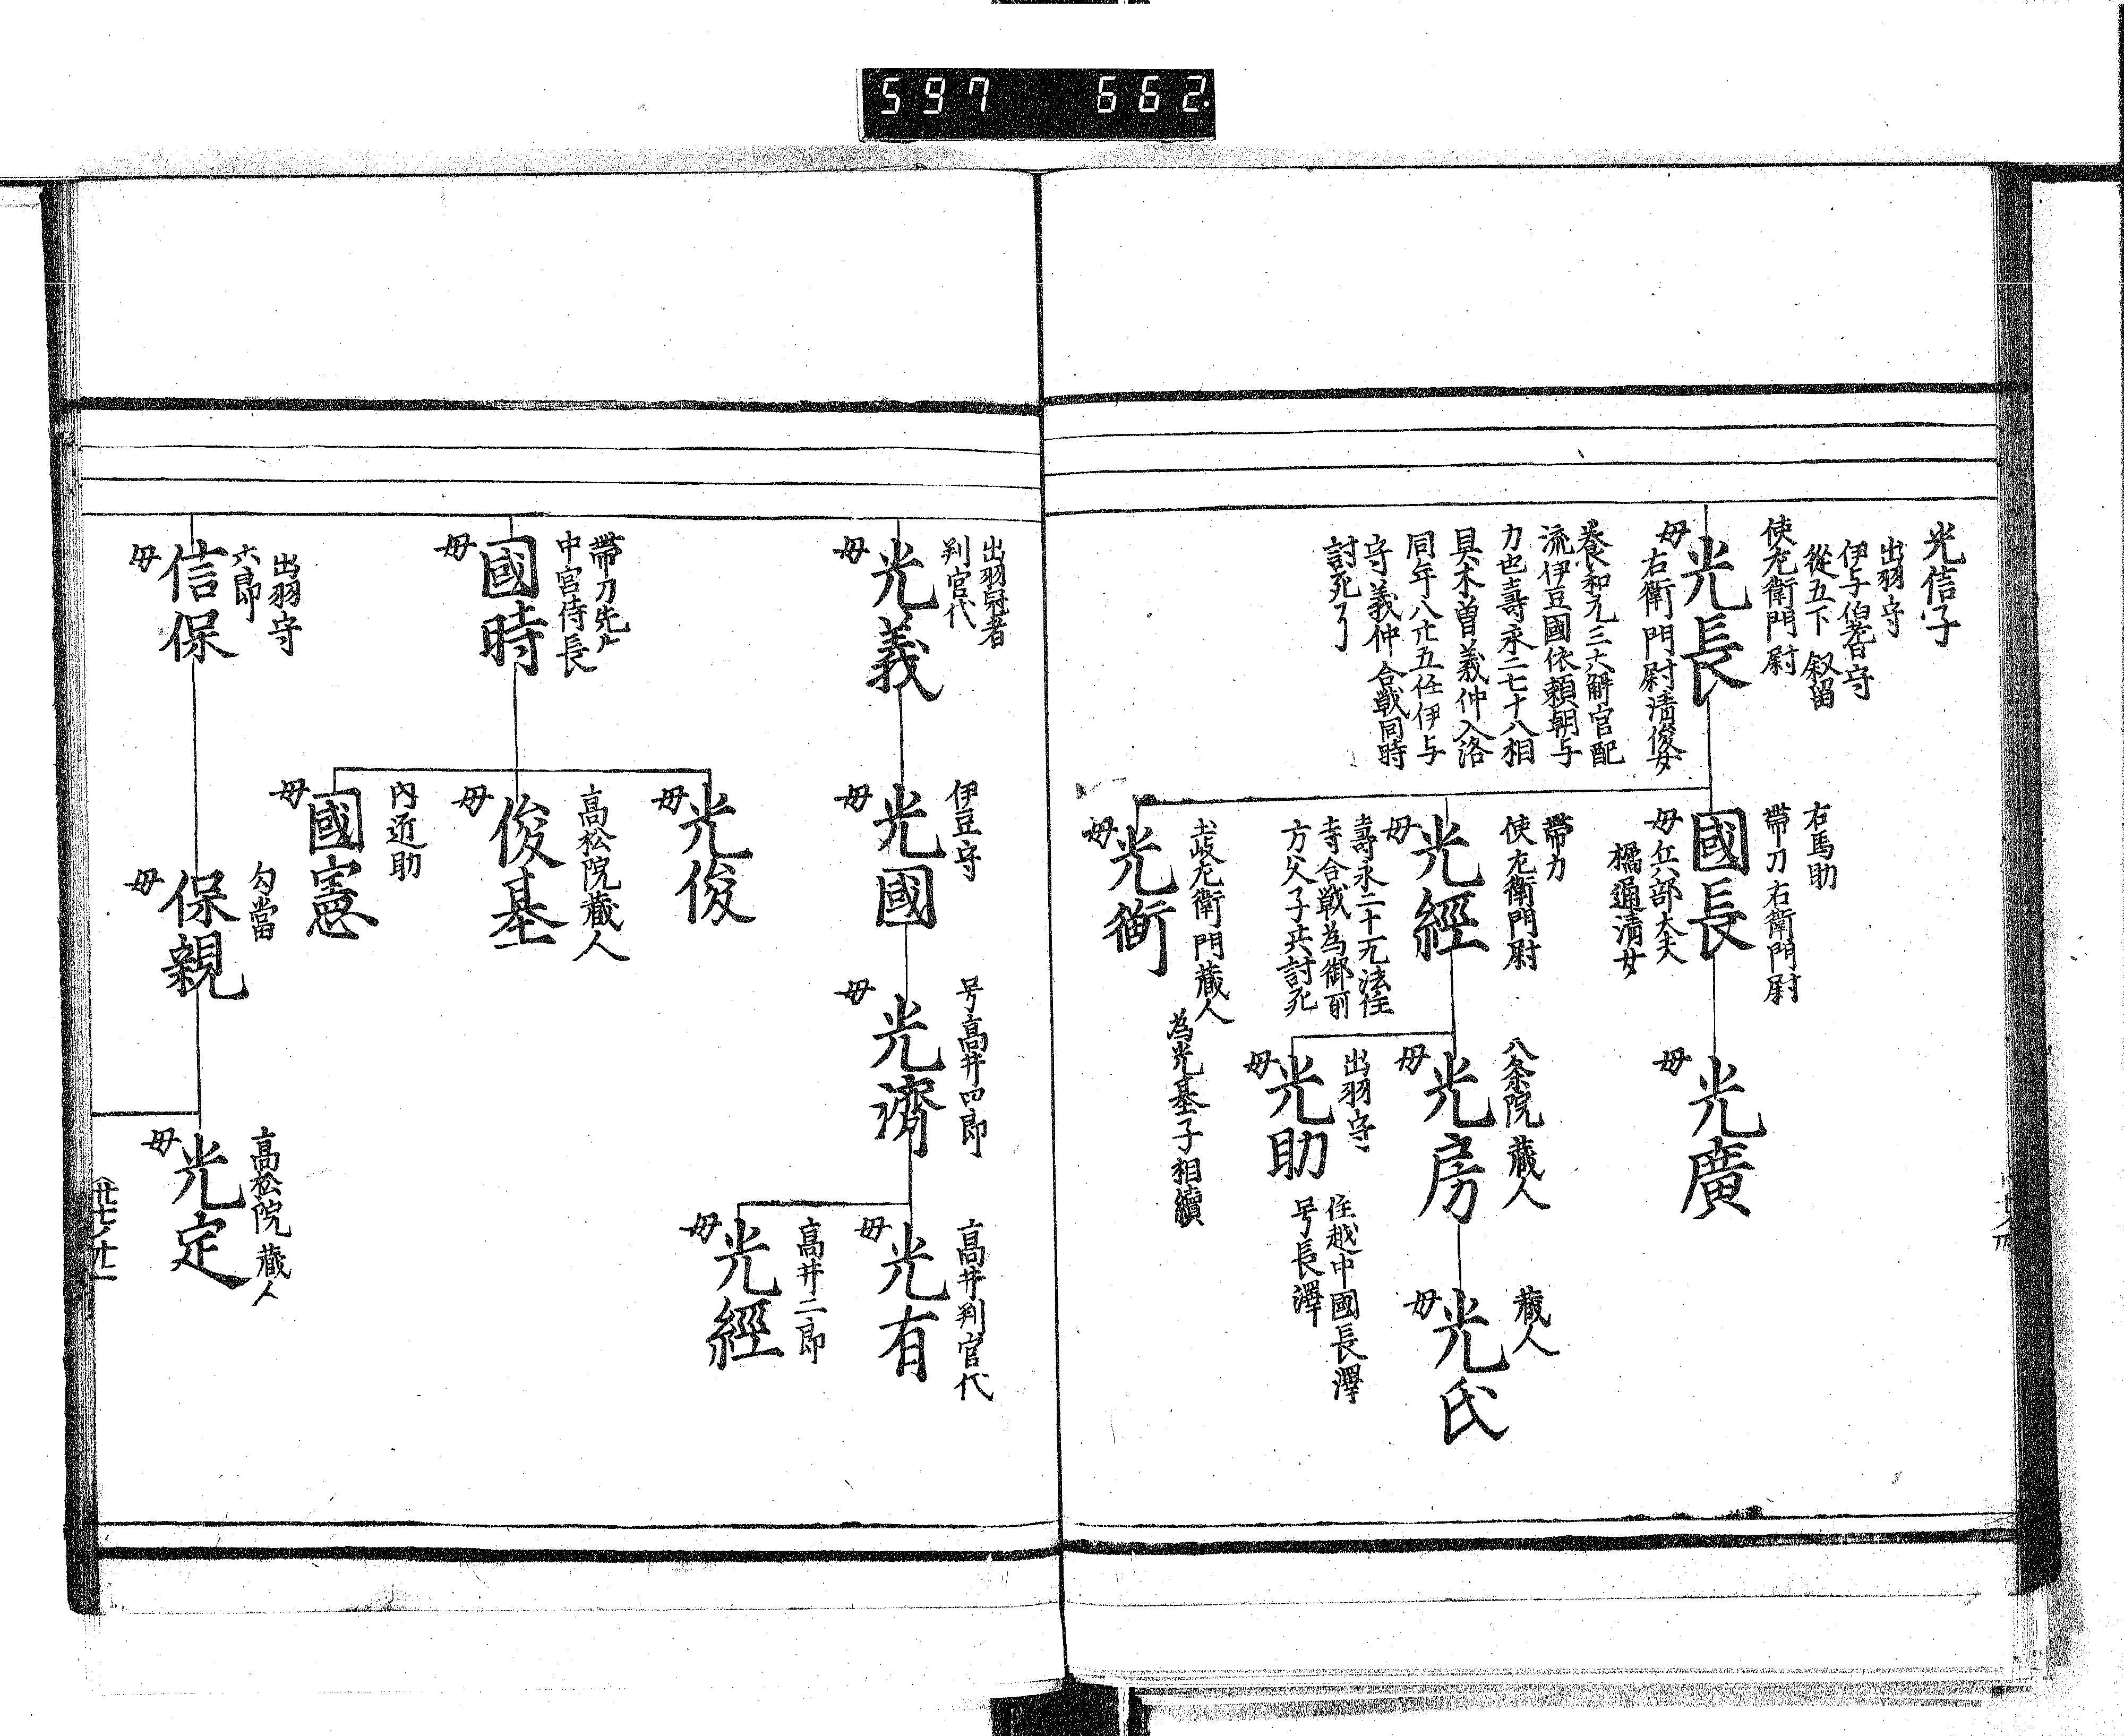 597 662.
光信子
出羽守
伊与伯耆守
從五下 叙留
使左衛門尉
光長
母
右衛門尉清俊女
養和元三六解官配
流伊豆國依頼朝与
力也壽永二七十八相
具木曽義仲入洛
同年八廿五任伊与
守義仲合戦同時
討死了
右馬助
帶刀右衛門尉
國長
母兵部大夫
橘通清女
光廣
母
帶刀
使左衛門尉
光經
母
壽永二十一九法住
寺合戦為御前
方父子共討死
八条院蔵人
光房
母
蔵人
光氏
母
出羽守
光助
母
住越中國長澤
号長澤
土岐左衛門蔵人
為光基子相續
光衡
母
出羽冠者
判官代
光義
母
伊豆守
光國
母
号高井四郎
光濟
母
高井判官代
光有
母
高井二郎
光經
母
帶刀先生
中宮侍長
國時
母
光俊
母
高松院蔵人
俊基
母
內近助
國憲
母
出羽守
六郎
信保
母
勾當
保親
母
高松院蔵人
光定
母